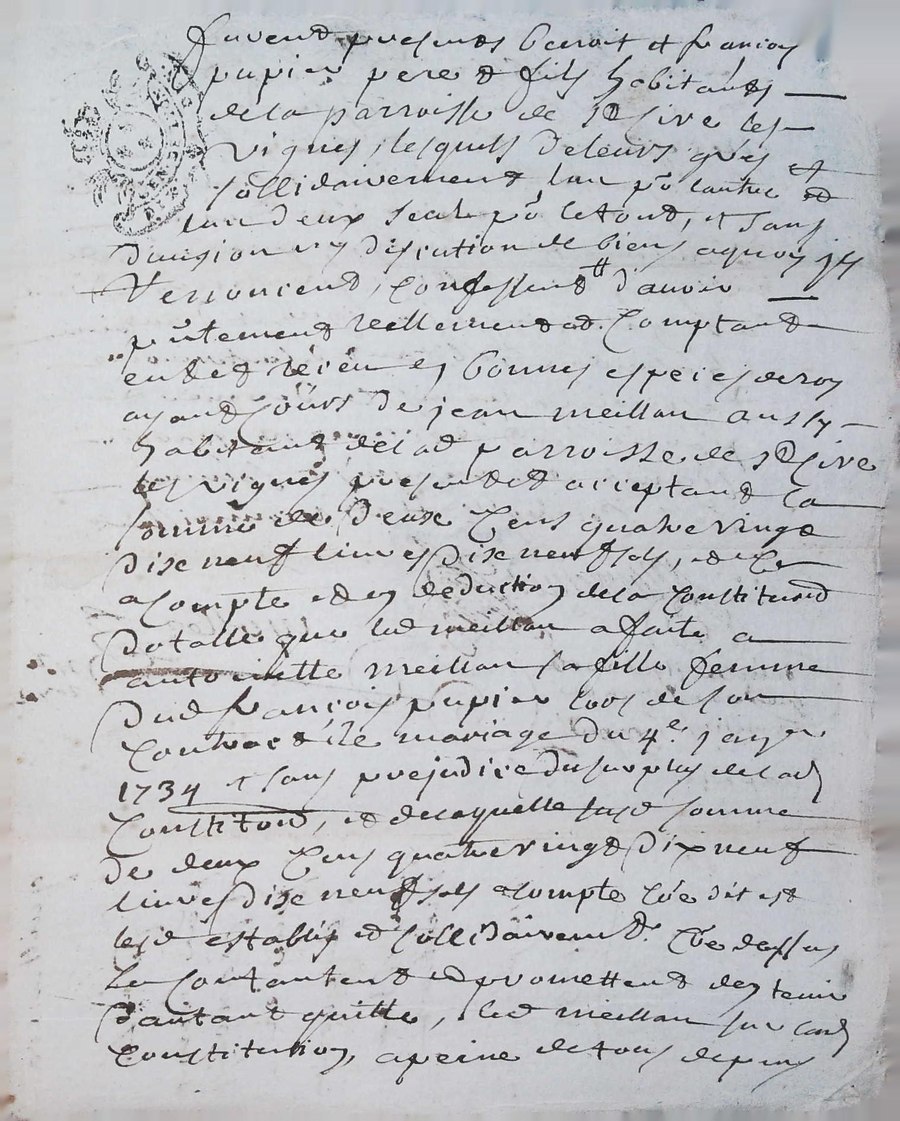 furent presents benoit et françois
papier pere & fils habitants
de la parroisse de St Sire les
vignes, lesquels de leurs grés
sollidairement lun pour lautre et
lun deux seul pour le tout, et sans
division ny discution de biens aquoy ils
renoncent, confessent davoir
pntement reellement et comptant
eu et réçeu en bonnes espeices de roy
ayant cours de jean meillan aussy
habitant de lad parroisse de St Sire
les vignes present et acceptant la
somme de deux cens quatre vingt
dise neuf livres dise neuf sols, et ce
a compte et en deduction de la constituon
dotalle que led meillan a faite a
antoinette meillan sa fille femme
dud françois papier lors de son
contract de mariage du 4e janer
1734 et sans prejudice du surplus de lad
constituon, et de laquelle susd somme
de deux cens quatre vingt dix neuf
livres dise neuf sols acompte coe dit est
lesd establis et sollidairemt coe dessus
se contantent et promettent den tenir
dautant quitte, led meillan sur lad
constitution, a peine de tous depens